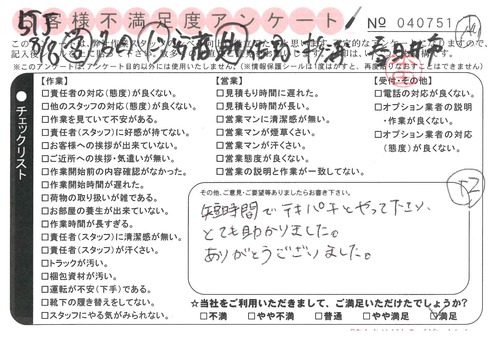 お客様不満足度アンケート
No 040751
※このアンケートはアンケート目的以外には使用いたしません。(※情報保護シールは1度はがすと、再度貼りなおすことはできません)
チェックリスト
【作業】
□責任者の対応(態度)が良くない。
□他のスタッフの対応(態度)が良くない。
□作業を見ていて不安がある。
□責任者(スタッフ)に好感が持てない。
□お客様への挨拶が出来ていない。
□ご近所への挨拶・気遣いが無い。
□作業開始前の内容確認がなかった。
□作業開始時間が遅れた。
□荷物の取り扱いが雑である。
□お部屋の養生が出来ていない。
□作業時間が長すぎる。
□責任者(スタッフ)に清潔感が無い。
□責任者(スタッフ)が汗くさい。
□トラックが汚い。
□梱包資材が汚い。
□運転が不安(下手)である。
□靴下の履き替えをしてない。
□スタッフにやる気がみられない。
【営業】
□見積もり時間に遅れた。
□見積もり時間が長い。
□営業マンに清潔感が無い。
□営業マンが煙草くさい。
□営業マンが汗くさい。
□営業態度が良くない。
□営業の説明と作業が一致してない。
【受付・その他】
□電話の対応が良くない。
□オプション業者の説明
・作業が良くない。
□オプション業者の対応
(態度)が良くない。
その他、ご意見・ご要望等ありましたらお書き下さい。
短時間でテキパキとやって下さり、
とても助かりました。
ありがとうございました。
☆当社をご利用いただきまして、ご満足いただけたでしょうか?
□不満 □やや不満 □普通 □やや満足 □満足